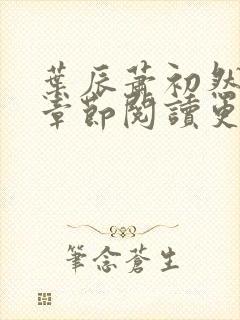 葉辰蕭初然
章節閱讀更
筆念蒼生